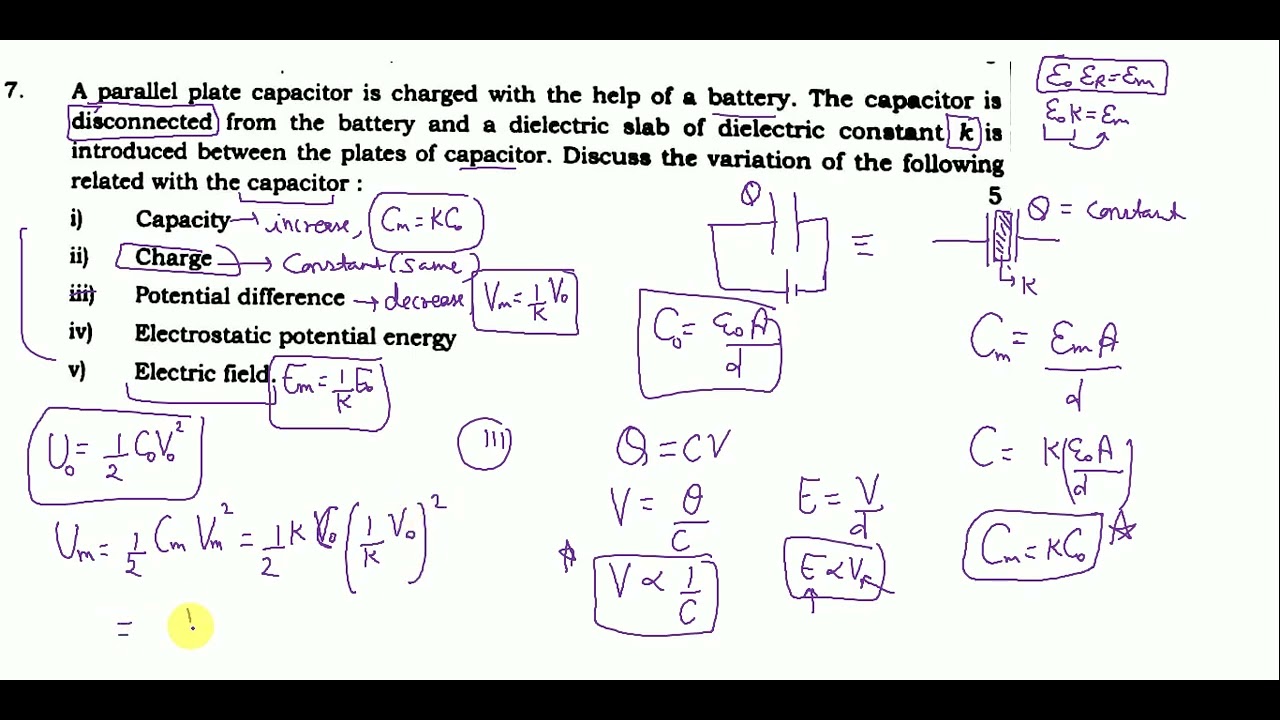 7. A parallel plate capacitor is charged with the help of a battery. The capacitor is
disconnected from the battery and a dielectric slab of dielectric constant k is
introduced between the plates of capacitor. Discuss the variation of the following
related with the capacitor :
5
i) Capacity → increase, Cm = KC₀
ii) Charge → Constant (same)
iii) Potential difference → decrease, Vm = 1/K V₀
iv) Electrostatic potential energy
v) Electric field. Em = 1/K E₀
U₀ = 1/2 C₀V₀²
Um = 1/2 Cm Vm² = 1/2 K C₀ (1/K V₀)²
=
III
Q
C₀ = ε₀A/d
Q = CV
V = Q/C
V ∝ 1/C
E = V/d
E ∝ V
ε₀ εR = εm
ε₀ K = εm
Q = Constant
K
Cm = εm A/d
C = K(ε₀A/d)
Cm = KC₀